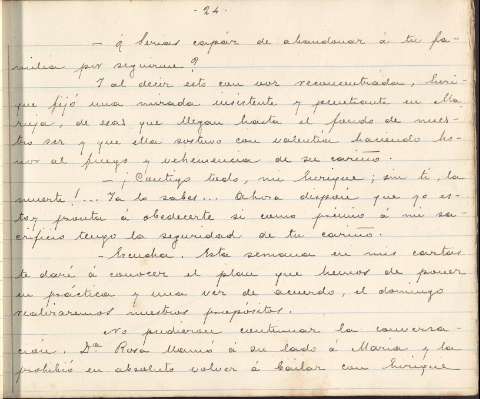 - 24 -
- ¿ Serias capáz de abandonar á tu fa-
milia por seguirme?
Y al decir esto con voz reconcentrada, Enri-
que fijó una mirada insistente y penetrante en Ma-
ruja, de esas que llegan hasta el fondo de nues-
tro ser y que ella sostuvo con valentía haciendo ho-
nor al fuego y vehemencia de su cariño.
- ¡Contigo todo, mi Enrique; sin ti, la
muerte!... Ya lo sabes... Ahora dispon que yo es-
toy pronta á obedecerte si como premio á mi sa-
crificio tengo la seguridad de tu cariño.
- Escucha. Esta semana en mis cartas
te daré á conocer el plan que hemos de poner
en práctica y una vez de acuerdo, el domingo
realizaremos nuestros propósitos.
No pudieron continuar la conversa-
ción. Dª Rosa llamó á su lado á Maria y la
prohibió en absoluto volver á bailar con Enrique